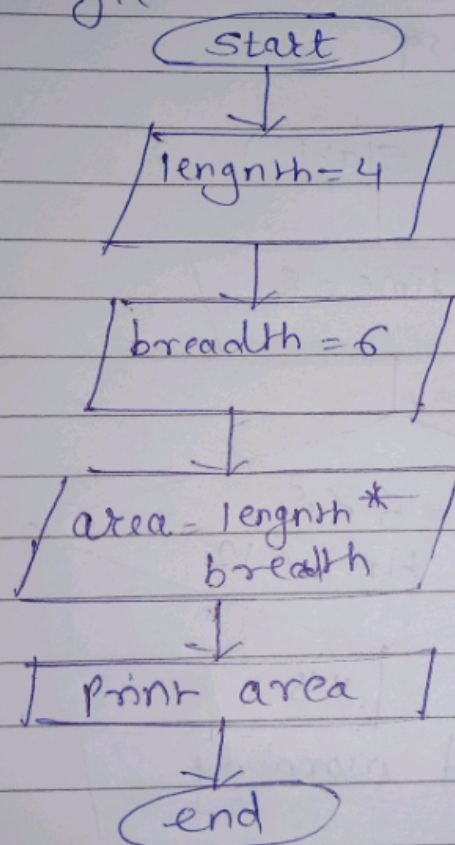 Start
lengnth = 4
breadth = 6
area = lengnth *
breadth
Print area
end